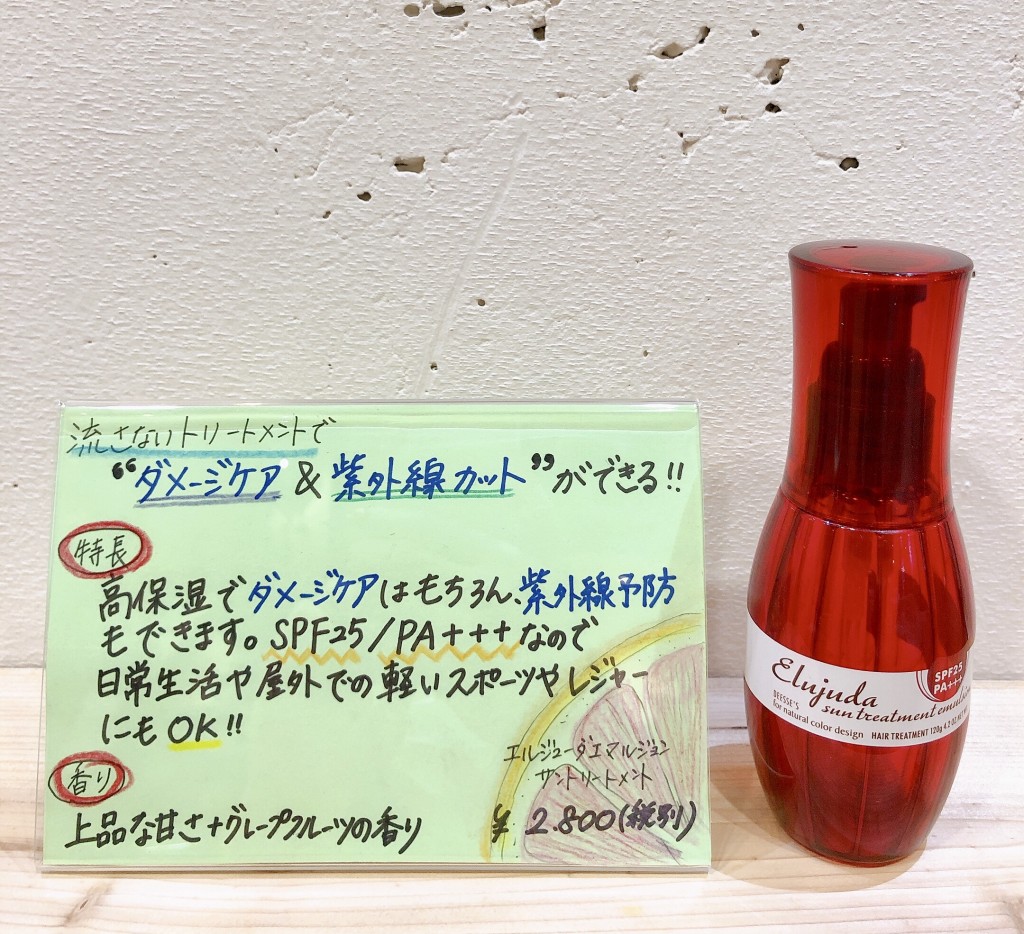 流さないトリートメントで
“ダメージケア&紫外線カット”ができる!!
特長
高保湿でダメージケアはもちろん、紫外線予防
もできます。SPF25/PA+++なので
日常生活や屋外での軽いスポーツやレジャー
にもOK!!
香り
上品な甘さ+グレープフルーツの香り
エルジューダエマルジョン
サントリートメント
¥2.800(税別)
SPF25
PA+++
Elujuda
DEESSE'S
sun treatment emulsion
for natural color design
HAIR TREATMENT 120g 4.2 OZ.